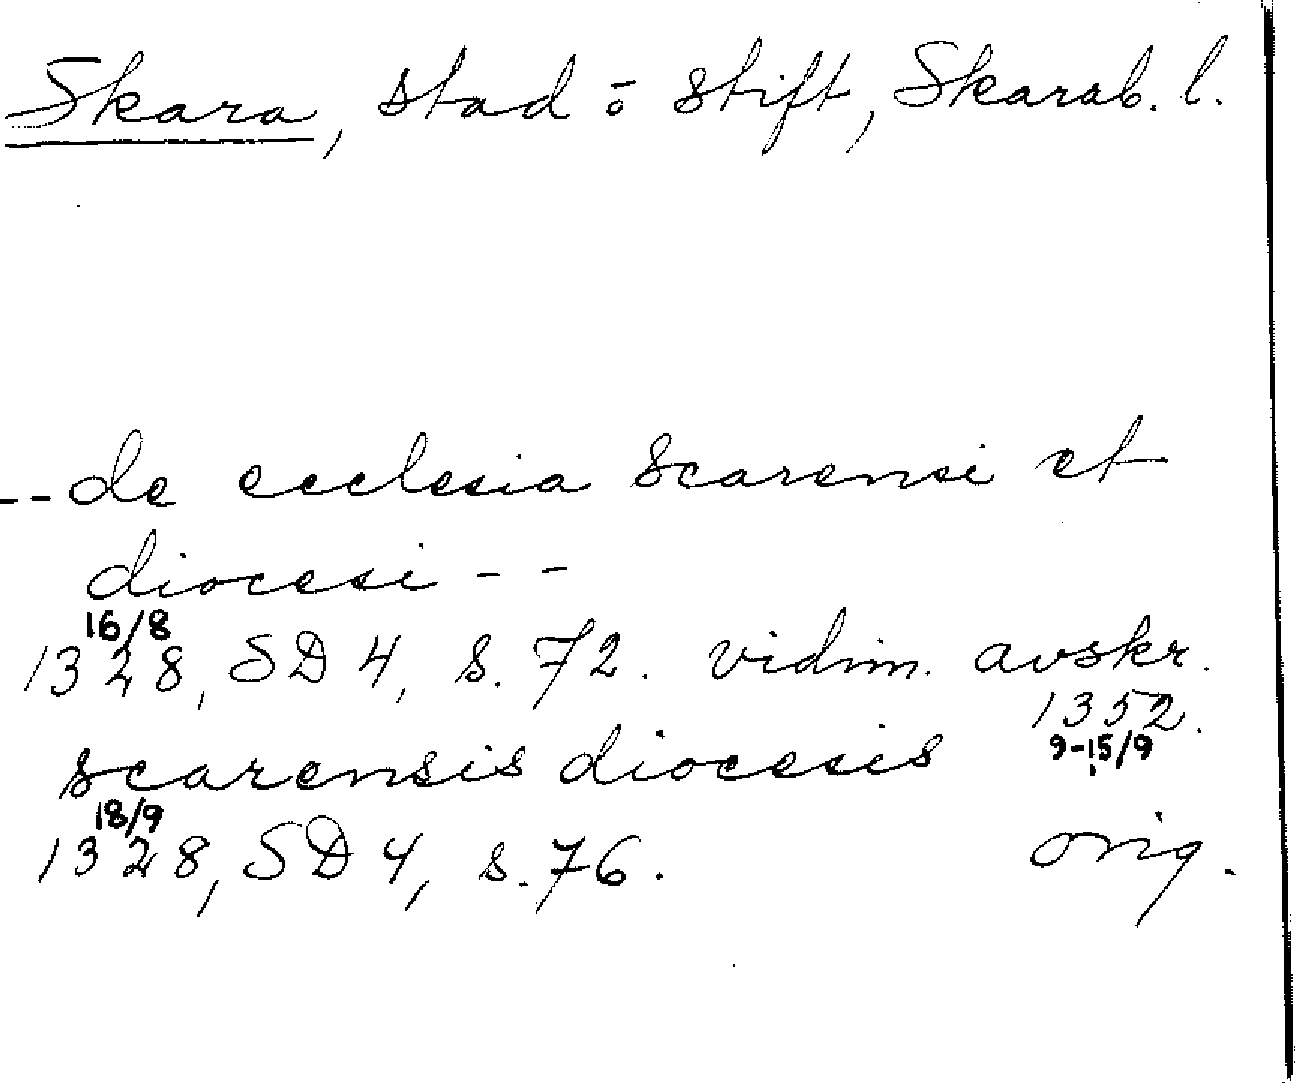 Skara, stad o stift, Skarab. l.
-- de ecclesia scarensi et
diocesi --
16/8
1328, SD 4, s. 72. vidim. avskr.
1352.
9-15/9
scarensis diocesis
18/9
1328, SD 4, s. 76. orig.